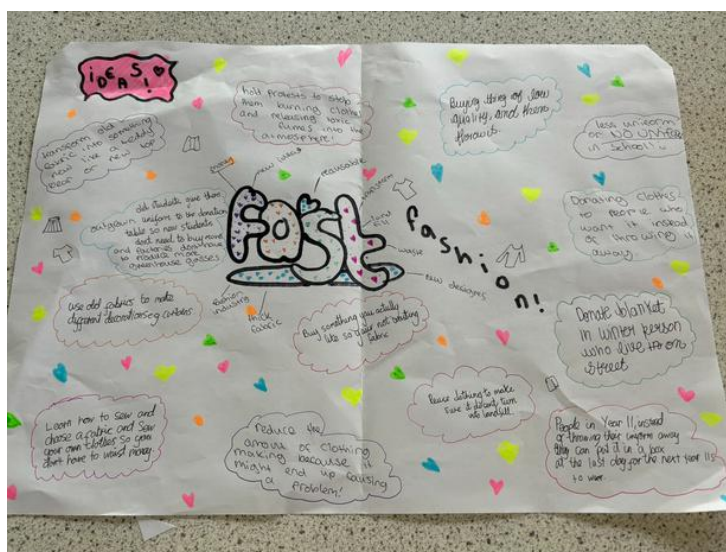 IDEAS!
transform old
fabric into something
new like a teddy
bear or new top
hold protests to stop
them burning clothes
and releasing toxic
fumes into the
atmosphere!
Buying thing of low
quality, and them
less uniform
or NO UNIFORM
in school!
old students give there
outgrown uniform to the donation
table so new students
dont need to buy more
and factories dont have
to produce more
greenhouse gasses
money
new ideas
reausable
land
fill
waste
new designes
thick
fabric
fashion
industry
FaSt
fashion!
Donating clothes
to people who
want it instead
of throwing it
away.
use old fabrics to make
different decorations eg curtains
Buy something you actually
like so your not wasting
fabric
Donate blanket
in winter person
who live on
street
Learn how to sew and
chose a fabric and sew
your own clothes so you
dont have to waist money.
reduce the
amount of clothing
making because it
might end up causing
a problem!
Reuse clothing to make
sure it doesnt turn
into landfill.
People in Year 11, instead
of throwing their uniform away
they can put it in a box
at the last day for the next year 11s
to wear.